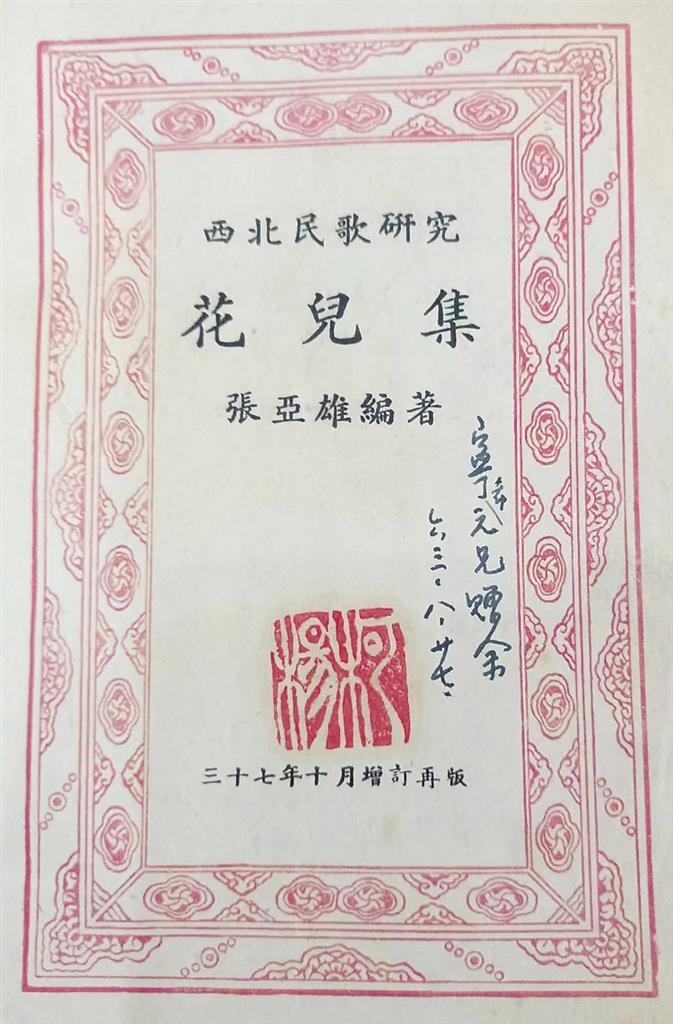 西北民歌硏究
花兒集
張亞雄編著
寧希元兄贈余
六三·八·廿七·
柯楊
三十七年十月增訂再版